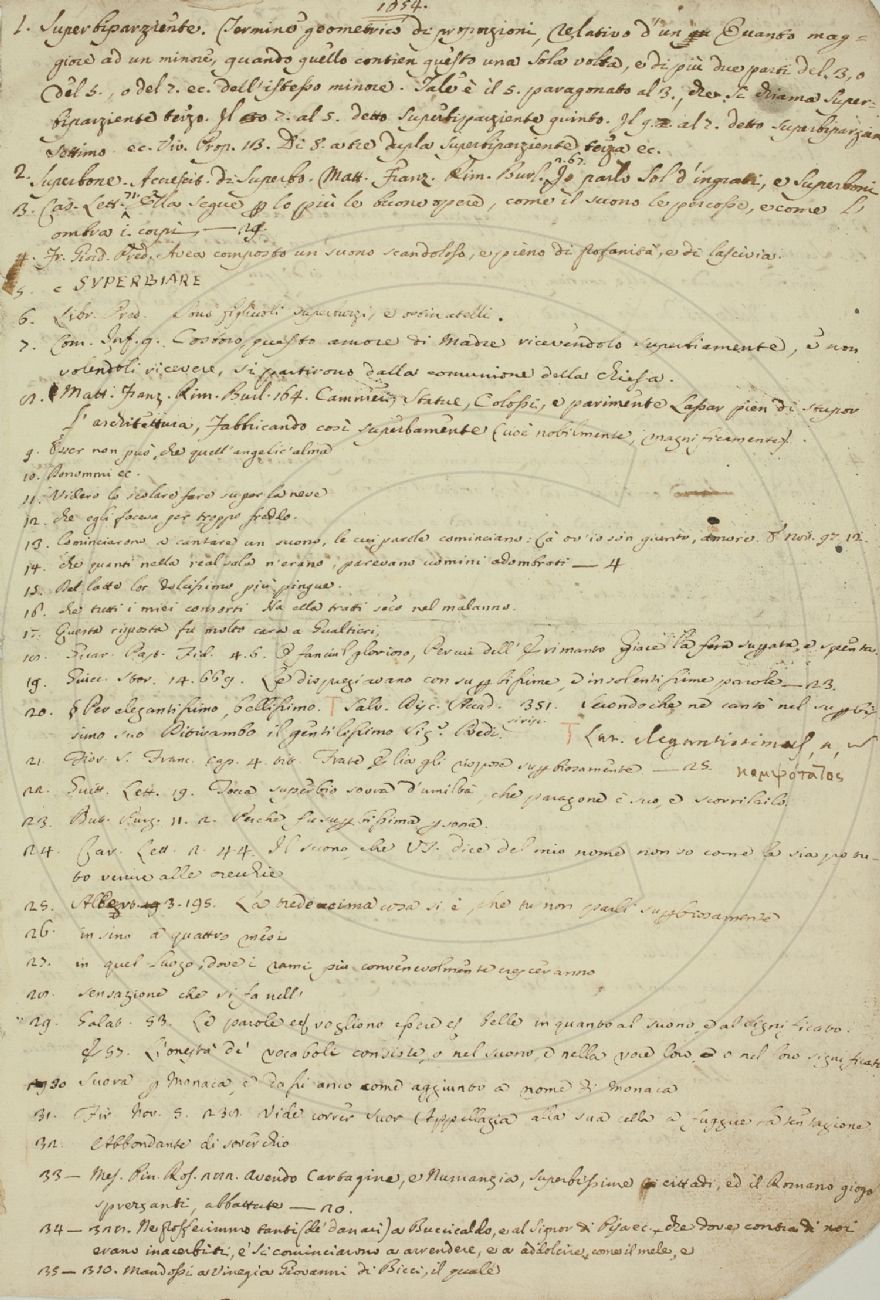 1654.
1. Superbiparziente. Termine geometrico di proporzioni, relativo d'un Quanto mag-
giore ad un minore, quando quello contien questo una sola volta, e di più due parti del 3, o
del 5., o del 7. ec. dell'istesso minore. Tale è il 5. paragonato al 3., che si chiama super-
biparziente terzo. Il 7. al 5. detto superbipparziente quinto. Il 9. al 7. detto superbiparziente
settimo ec. Viv. Prop. 113. Di 8. a tre dupla superbiparziente terza ec.
2. Superbone. Accrescit. di Superbo. Matt. Franz. Rim. Burl. 2. 67. Io parlo sol d'ingrati, e superboni
3. Car. Lett. Ella segue lo più le buone opere, come il suono le percosse, e come l'
ombra i corpi — 29.
4. Fr. Giord. Pred. Avea composto un suono scandoloso, e pieno di profanità, e di lascivia.
5. e SUPERBIARE
6. Libr. Pred. Sono figliuoli superuzzi, e ostinatelli.
7. Com. Inf. 9. Costoro questo amore di Madre ricevendolo superbiamente, e non
volendoli ricevere, si partirono dalla comunione della chiesa.
8. Matt. Franz. Rim. Burl. 164. Statue, Colossi, e parimente Lassar pien di stupor
l'architettura, Fabbricando così superbamente (cioè nobilmente, magnificamente).
9. Esser non può, che quell'angelic'alma
10. Bonommi ec.
11. Videro lo scolare fare su per la neve
12. che egli faceva per troppo freddo.
13. Cominciarono a cantare un suono, le cui parole cominciano: Là ov'io son giunto, amore. nov. 97. 12.
14. che quanti nella real sala n'erano, parevano uomini adombrati — 4
15. Bel latte lor dolcissimo più pingue.
16. che tutti i miei consorti Ha ella tratti seco nel malanno.
17. Questa risposta fu molto cara a Gualtieri,
18. Guar. Past. Fid. 4. 6. O fanciul glorioso, Per cui dell' Erimanto Giace la fera superata, e spenta.
19. Guicc. Stor. 14. 669. Lo dispregiavano con superbissime, e insolentissime parole — 23.
20. § Per elegantissimo, bellissimo. T Salv. Disc. Acad. 351. Secondoche ne cantò nel superbis-
simo suo Ditirambo il gentilissimo Sig. Redi. T Lat. elegantissimus, a, um
κομψότατος
21. Fior. S. Franc. cap. 4. Frate Elia gli rispose superbiosamente — 25.
22. Guitt. Lett. 19. Tocca superbio sovra d'umiltà, che paragone è suo, e scovrilailo.
23. But. Purg. 11. 2. Perche fu superbissima persona.
24. Car. Lett. 2. 44. Il suono, che VS. dice del mio nome non so come le sia potu-
to venire alle orecchie
25. Albert. 3. 195. La tredecima cosa si è, che tu non parli superbiosamente
26. in sino a quattro mesi
27. in quel luogo, dove i rami più convenevolmente cresceranno
28. sensazione che si fa nell'
29. Galat. 83. Le parole vogliono essere belle in quanto al suono, e al significato.
E 87. L'onestà de' vocaboli consiste, o nel suono, e nella voce loro, o nel loro significato
30 Suora per Monaca, e da fu anco come aggiunto a nome di Monaca
31. Fir. Nov. 5. 239. Vide correr suor Appellagia alla sua cella a fuggire la tentazione
32. Abbondante di soverchio
33 — Mes. Pin. Ros. Avendo Cartagine, e Numanzia, superbissime cittadi, ed il Romano giogo
sprezzanti, abbattute — 20.
34 — 322. Ne profferimmo tanti (de' danari) a Buccicaldo, e al signor di Pisa ec. che dove contra di noi
erano inacerbiti, e' si cominciarono a arrendere, e a addolcire, come il mele, e
35 — 310. Mandossi a Vinegia Giovanni di Bicci, il quale